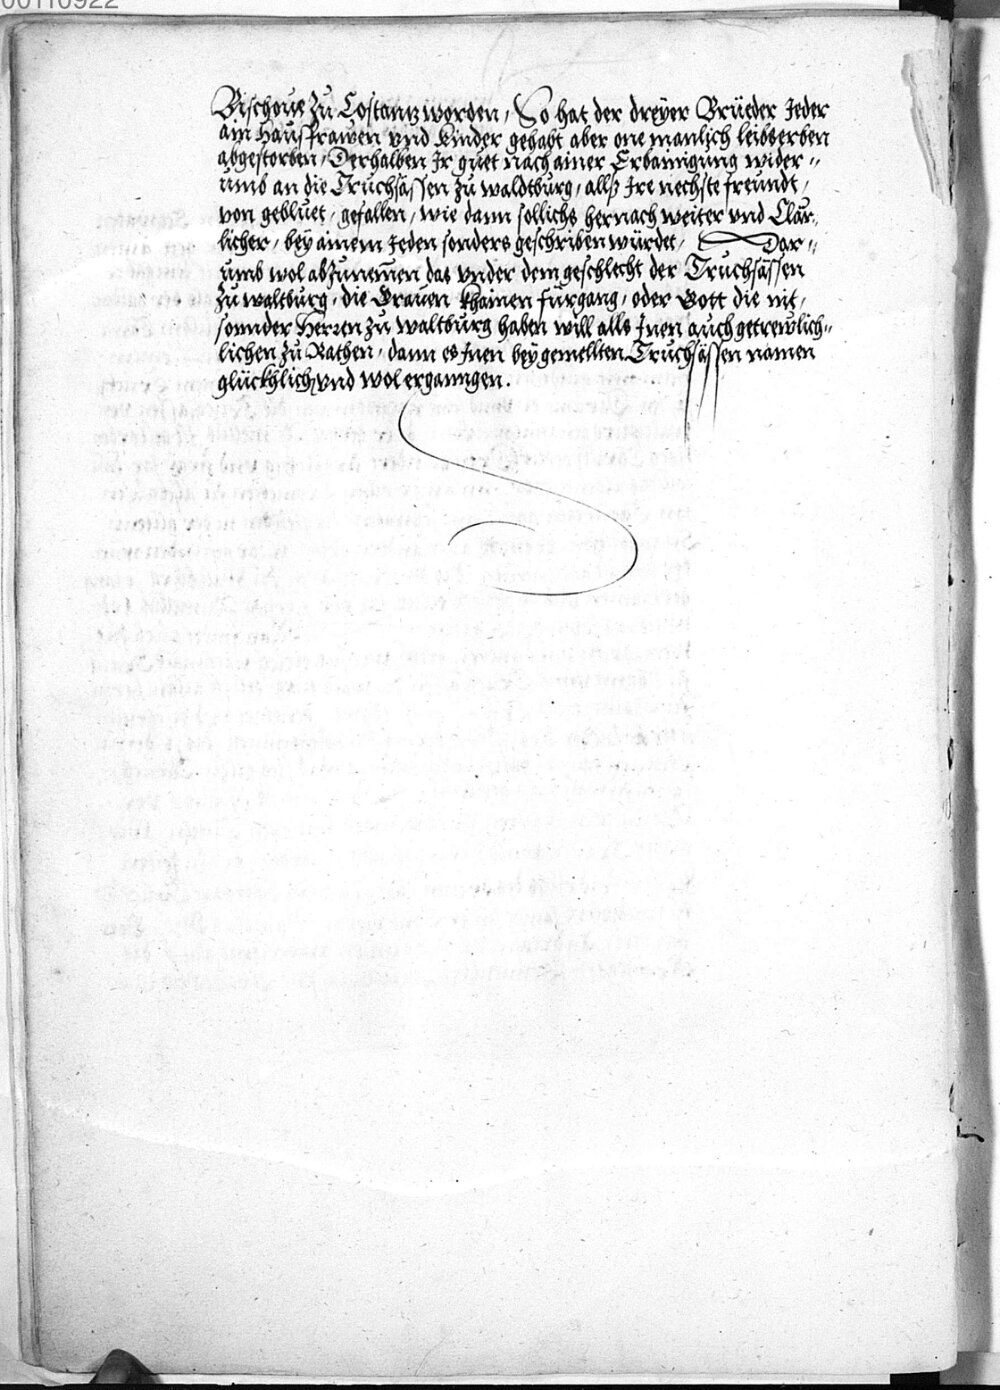 00110922
Bischoue zu Costantz worden, So hat der dreyer Brüeder Jeder
ain Hausfrawen vnd Kinder gehabt aber one manlich leibserben
abgestorben, Derhalben Ir guet nach ainer Erbainigung wider-
umb an die Truchsässen zu waldtburg, allß Ire nechste freundt,
von gebluet, gefallen, wie dann sollichs hernach weiter vnd Clär-
licher, bey ainem Jeden sonders geschriben würdet, Dar-
umb wol abzunemen das vnder dem geschlecht der Truchsässen
zu waltburg, die Grauen khainen fürgang, oder Gott die nit,
sonnder Herren zu waltburg haben will alls Inen auch getrewlich-
lichen zu Rathen, dann es Inen bey gemellten Truchsässen namen
glückhlich vnd wol erganngen.